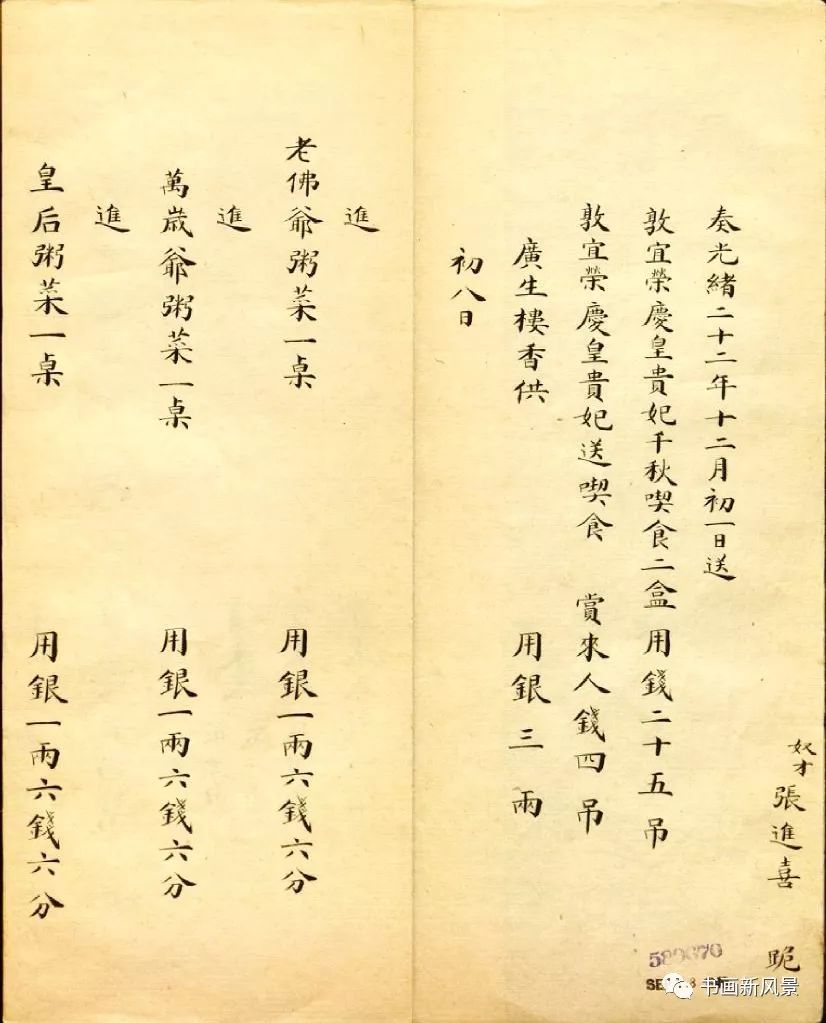 奴才張進喜 跪
奏光緒二十二年十二月初一日送
敦宜榮慶皇貴妃千秋喫食二盒用錢二十五吊
敦宜榮慶皇貴妃送喫食 賞來人錢四吊
廣生樓香供 用銀三兩
初八日
進
老佛爺粥菜一桌 用銀一兩六錢六分
進
萬歲爺粥菜一桌 用銀一兩六錢六分
進
皇后粥菜一桌 用銀一兩六錢六分
书画新风景